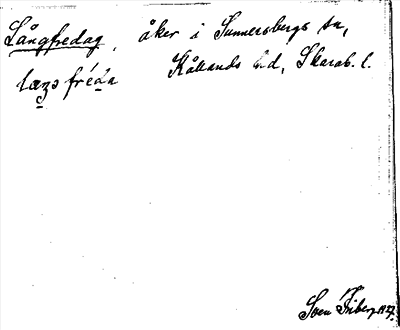 Långfredag, åker i Sunnersbergs sn,
Kållands hd, Skarab. l.
Sven Friberg 1927.